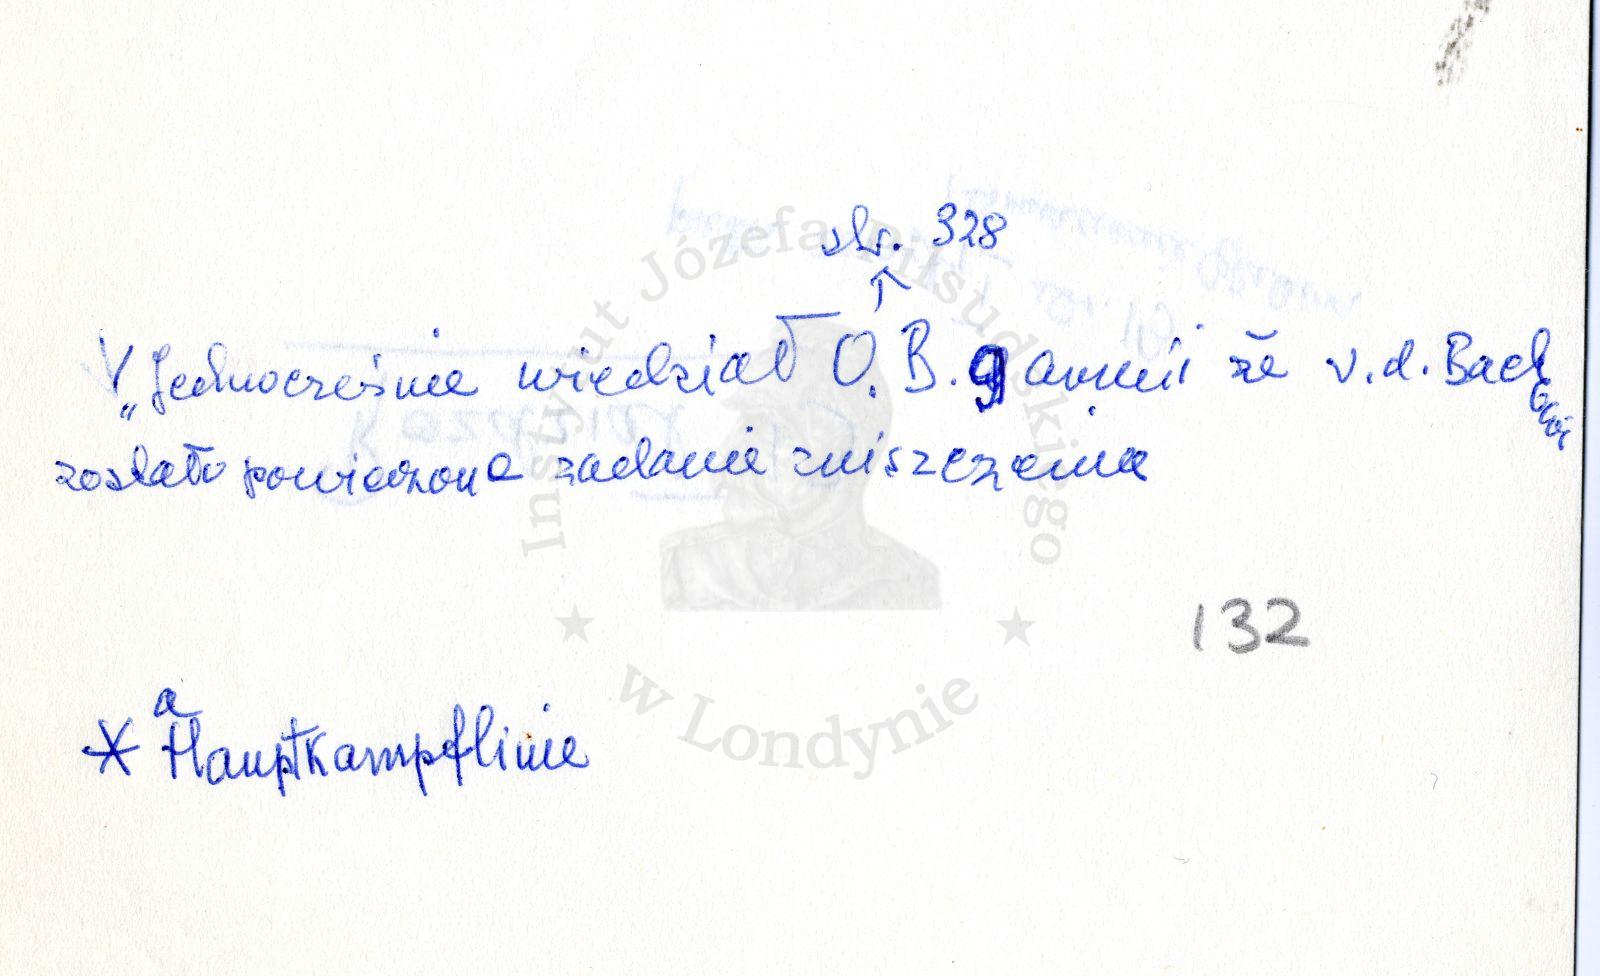 str. 328
V „Jednocześnie wiedział O. B. 9 armii że v. d. Bach
owi
zostało powierzone zadanie zniszczenia
132
a
* Hauptkampflinie
Instytut Józefa Piłsudskiego
w Londynie